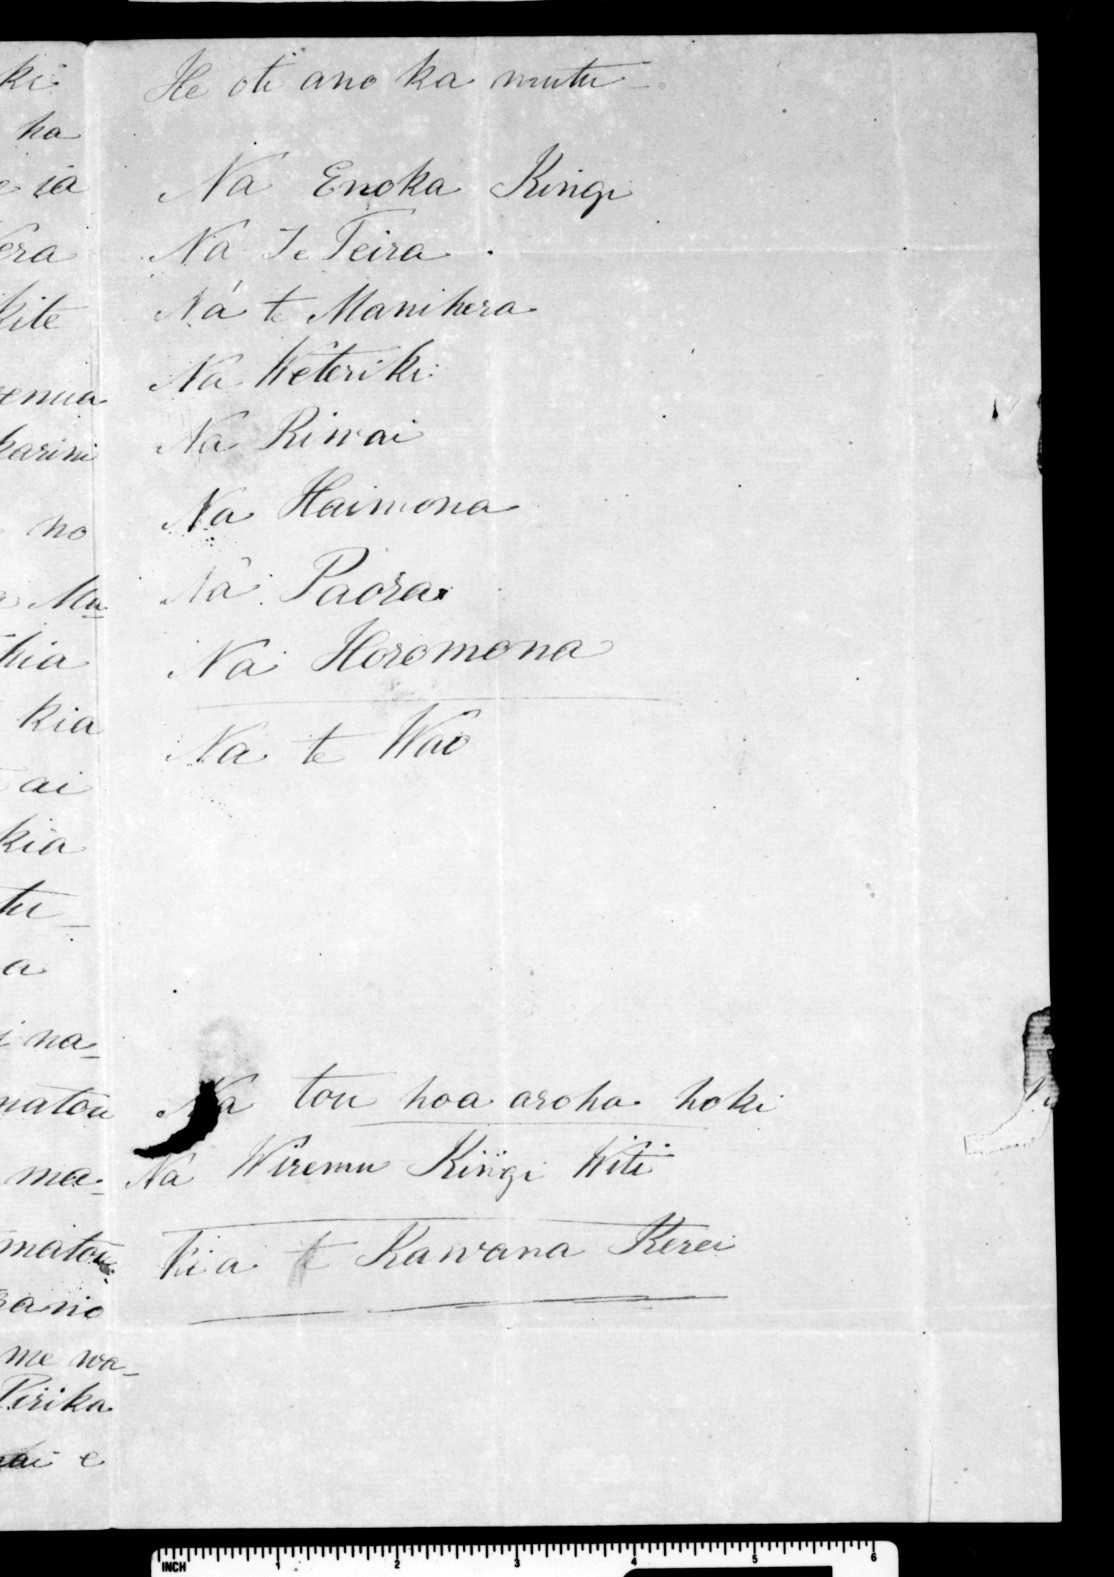 He oti ano ka mutu
Na Enoka Kingi
Na Te Teira
Na te Manihera
Na Weteriki
Na Riwai
Na Haimona
Na Paora
Na Horomona
Na te Wao
Na tou hoa aroha hoki
Na Wiremu Kingi Witi
Kia te Kawana Kerei
ki
ha
ia
era
kite
enua
karini
no
Mu-
hia
kia
ai
kia
tu
a
na-
matou
ma-
matou
ano
me wa-
Pirika
ai e
INCH 1 2 3 4 5 6